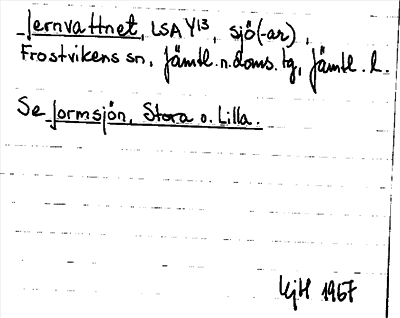 Jernvattnet, LSA Y13, sjö(-ar),
Frostvikens sn, Jämtl. n. doms. tg, Jämtl. l.
Se Jormsjön, Stora o. Lilla.
KjH 1967